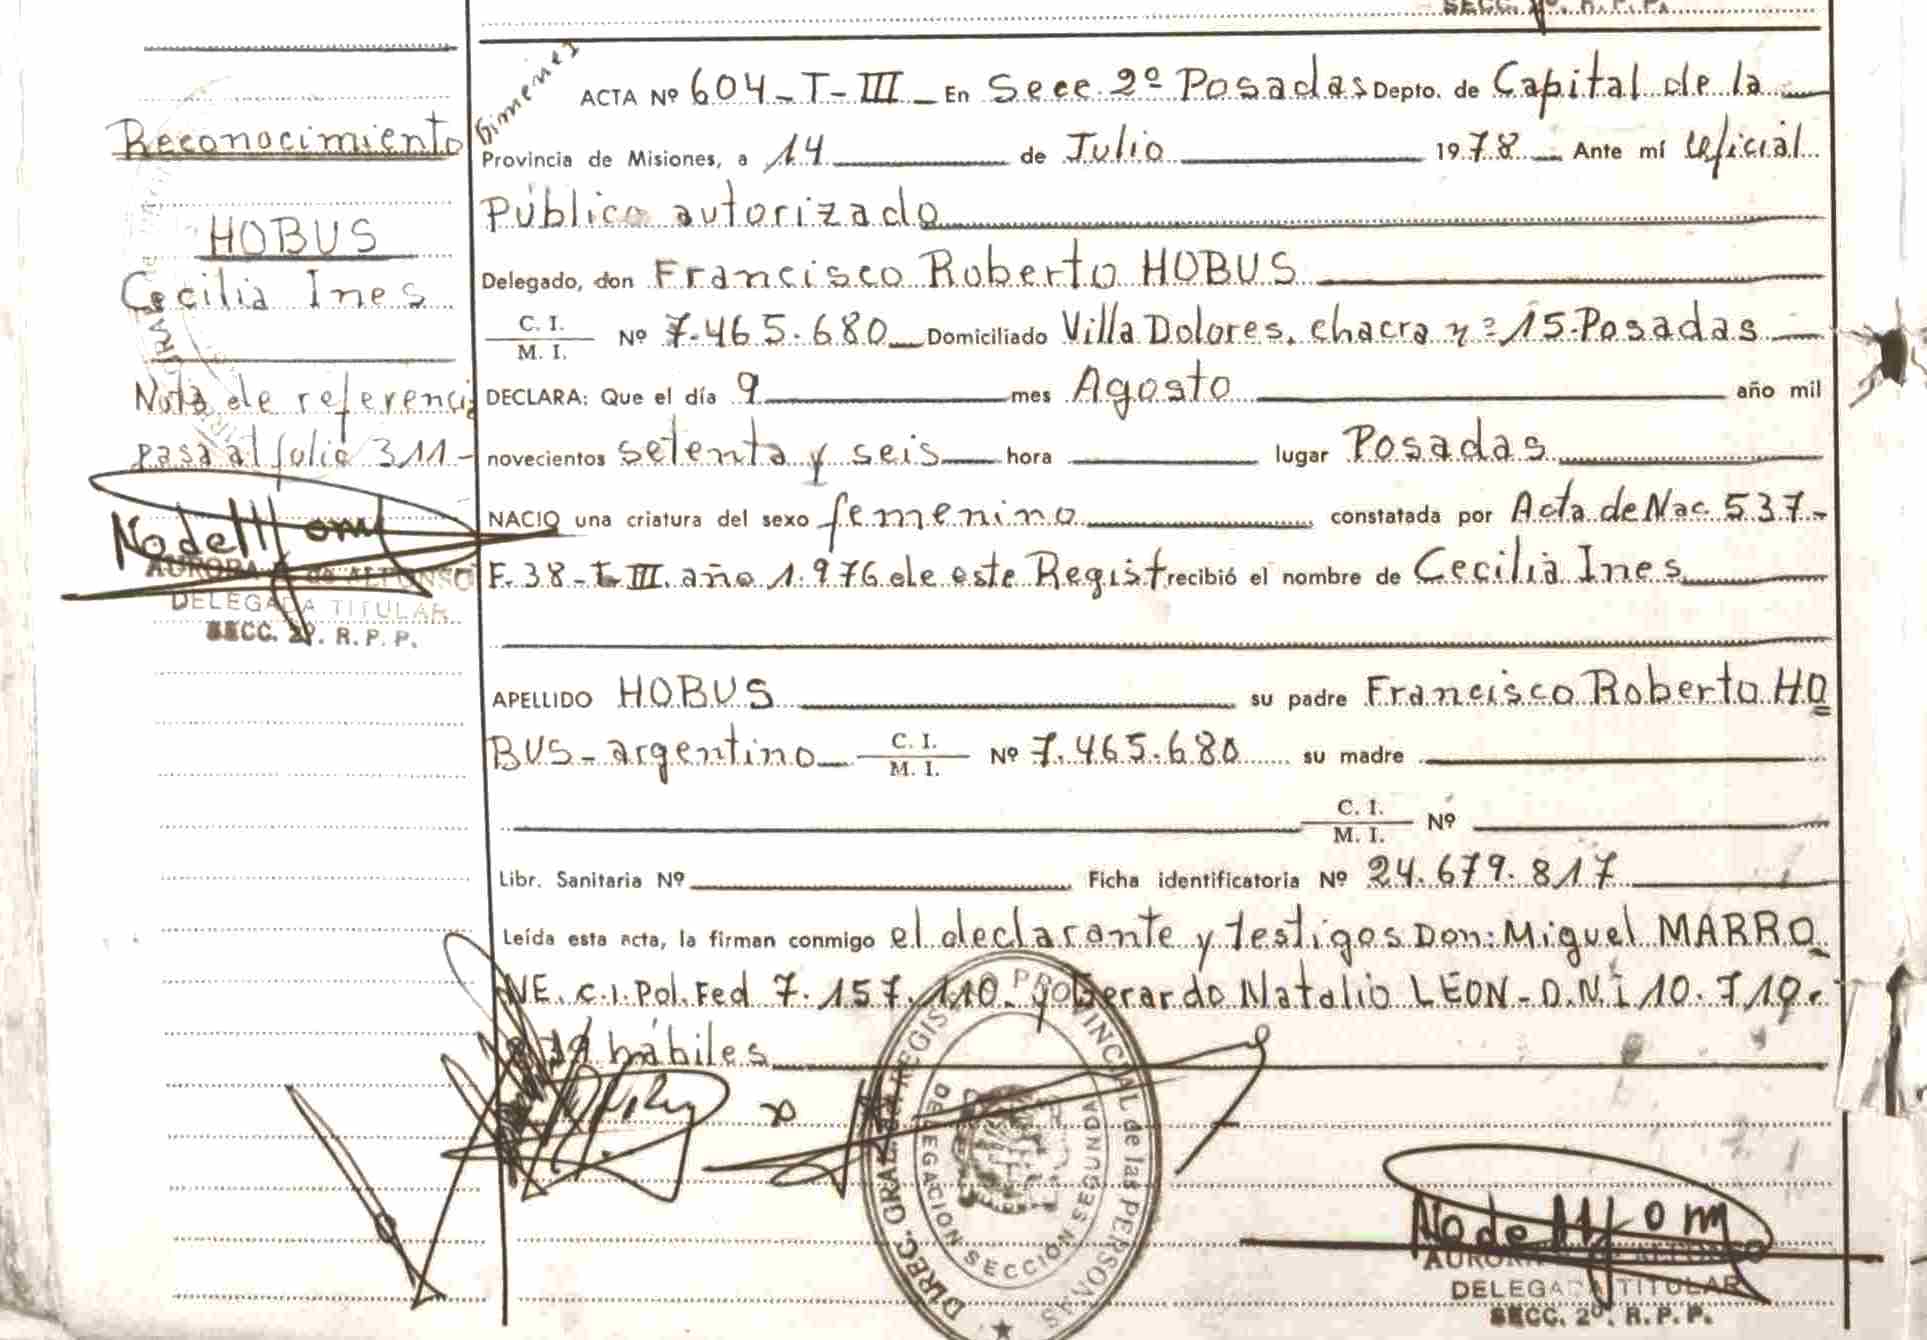 SECC. 2º. R. P. P.
Gimenez
Reconocimiento
HOBUS
Cecilia Ines
Nota de referencia
pasa al folio 311-
AURORA de ALFONSO
DELEGADA TITULAR
SECC. 2º. R. P. P.
ACTA Nº 604-T-III En Secc. 2º Posadas Depto. de Capital de la
Provincia de Misiones, a 14 de Julio 1978 Ante mí Oficial
Público autorizado
Delegado, don Francisco Roberto HOBUS
C. I.
M. I. Nº 7.465.680 Domiciliado Villa Dolores, chacra nº 15-Posadas
DECLARA: Que el día 9 mes Agosto año mil
novecientos setenta y seis hora lugar Posadas
NACIO una criatura del sexo femenino constatada por Acta de Nac. 537-
F. 38-T-III año 1.976 de este Regist recibió el nombre de Cecilia Ines
APELLIDO HOBUS su padre Francisco Roberto HO
BUS-argentino C. I.
M. I. Nº 7.465.680 su madre
C. I.
M. I. Nº
Libr. Sanitaria Nº Ficha identificatoria Nº 24.679.817
Leída esta acta, la firman conmigo el declarante y testigos Don: Miguel MARRO
NE. C.I. Pol. Fed 7.157.110 y Gerardo Natalio LEON-D.N.I 10.710.
hábiles
DIREC. GRAL. del REGISTRO PROVINCIAL de las PERSONAS
DELEGACION SECCION SEGUNDA
DELEGADA TITULAR
SECC. 2º. R. P. P.